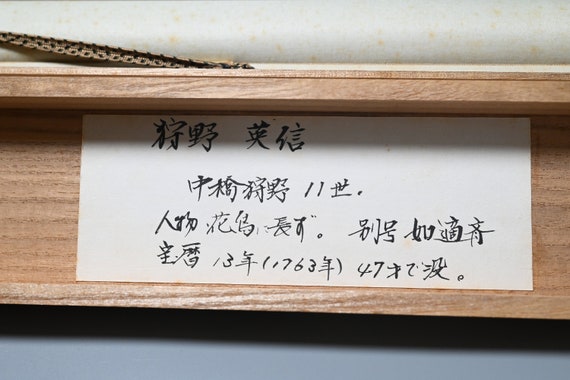 狩野 英信
中橋狩野 11世.
人物 花鳥に長ず。 別号 如適斉
宝暦 13年(1763年) 47才で没。